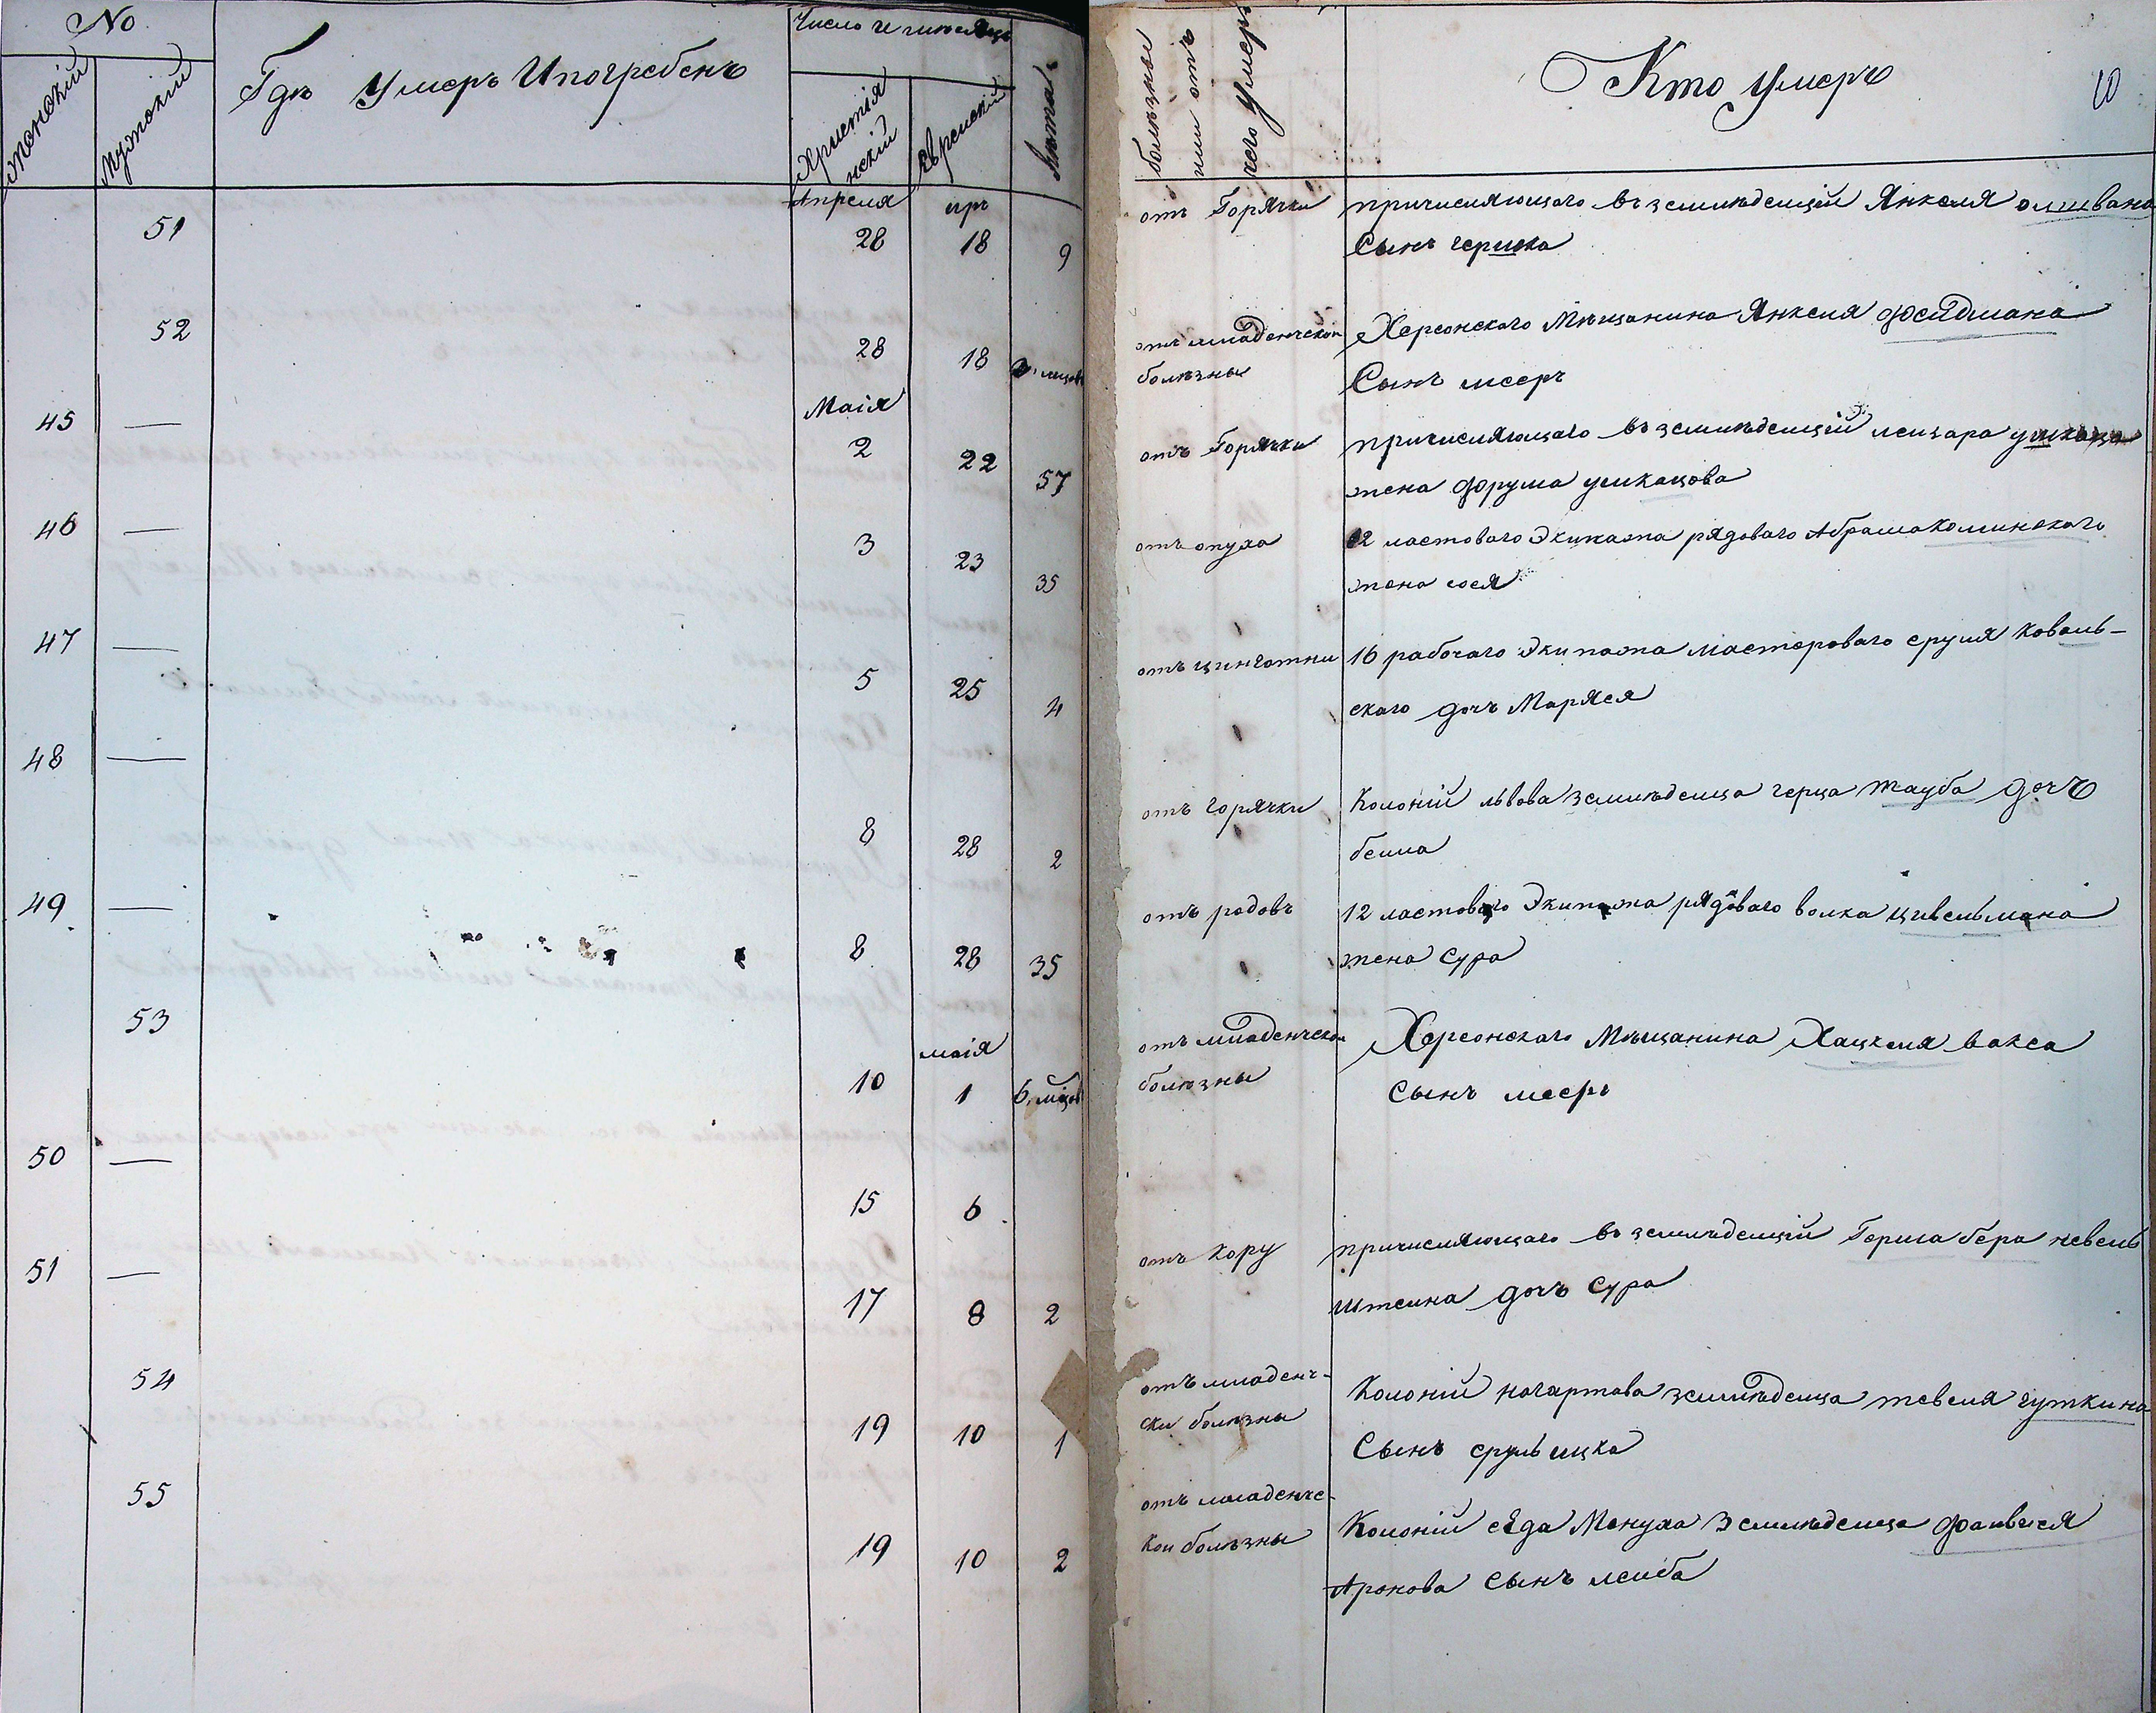 No
женскій
Мужскій
Гдѣ Умеръ И погребенъ
Число и мѣсяцъ
Христія
нскій
Еврейскій
Лѣта
болѣзны
или отъ
чего Умеръ
Кто умеръ
10
51
Апреля
28
иръ
18
9
отъ Горячки
причисляющаго въ земледелцій Янкеля олшвана
Сынъ гершка
52
28
18
3. мцов
отъ младенческой
болѣзны
Херсонскаго Мѣщанина Янкеля фейдмана
Сынъ мееръ
45
—
Маія
2
22
57
отъ Горячки
причисляющаго въ земледелцій лейзара
жена фрума
46
—
3
23
35
отъ опуха
12 ластоваго Экипажа рядоваго Абрама Коминскаго
жена сося
47
—
5
25
4
отъ цинготни
16 рабочаго Экипажа мастероваго сруля Коваль-
скаго дочъ Маряся
48
—
8
28
2
отъ горячки
Колоній львова земледелца герца тауба дочъ
бейла
49
—
8
28
35
отъ родовъ
12 ластоваго Экипажа рядоваго волка цивельмана
жена Сура
53
10
маія
1
6. мцов
отъ младенческои
болѣзны
Херсонскаго Мѣщанина Хацкеля вакса
Сынъ меерь
50
—
15
6
51
—
17
8
2
отъ кору
причисляющаго въ земледелцій Герша бера невель
штеина дочъ Сура
54
19
10
1
отъ младенч-
ски болѣзны
Колоній нагартова земледелца тевеля гуткина
Сынъ сруль ицка
55
19
10
2
отъ младенче-
кои болѣзны
Колоній сѣда Менуха Земледелца фаивися
Аронова Сынъ леиба